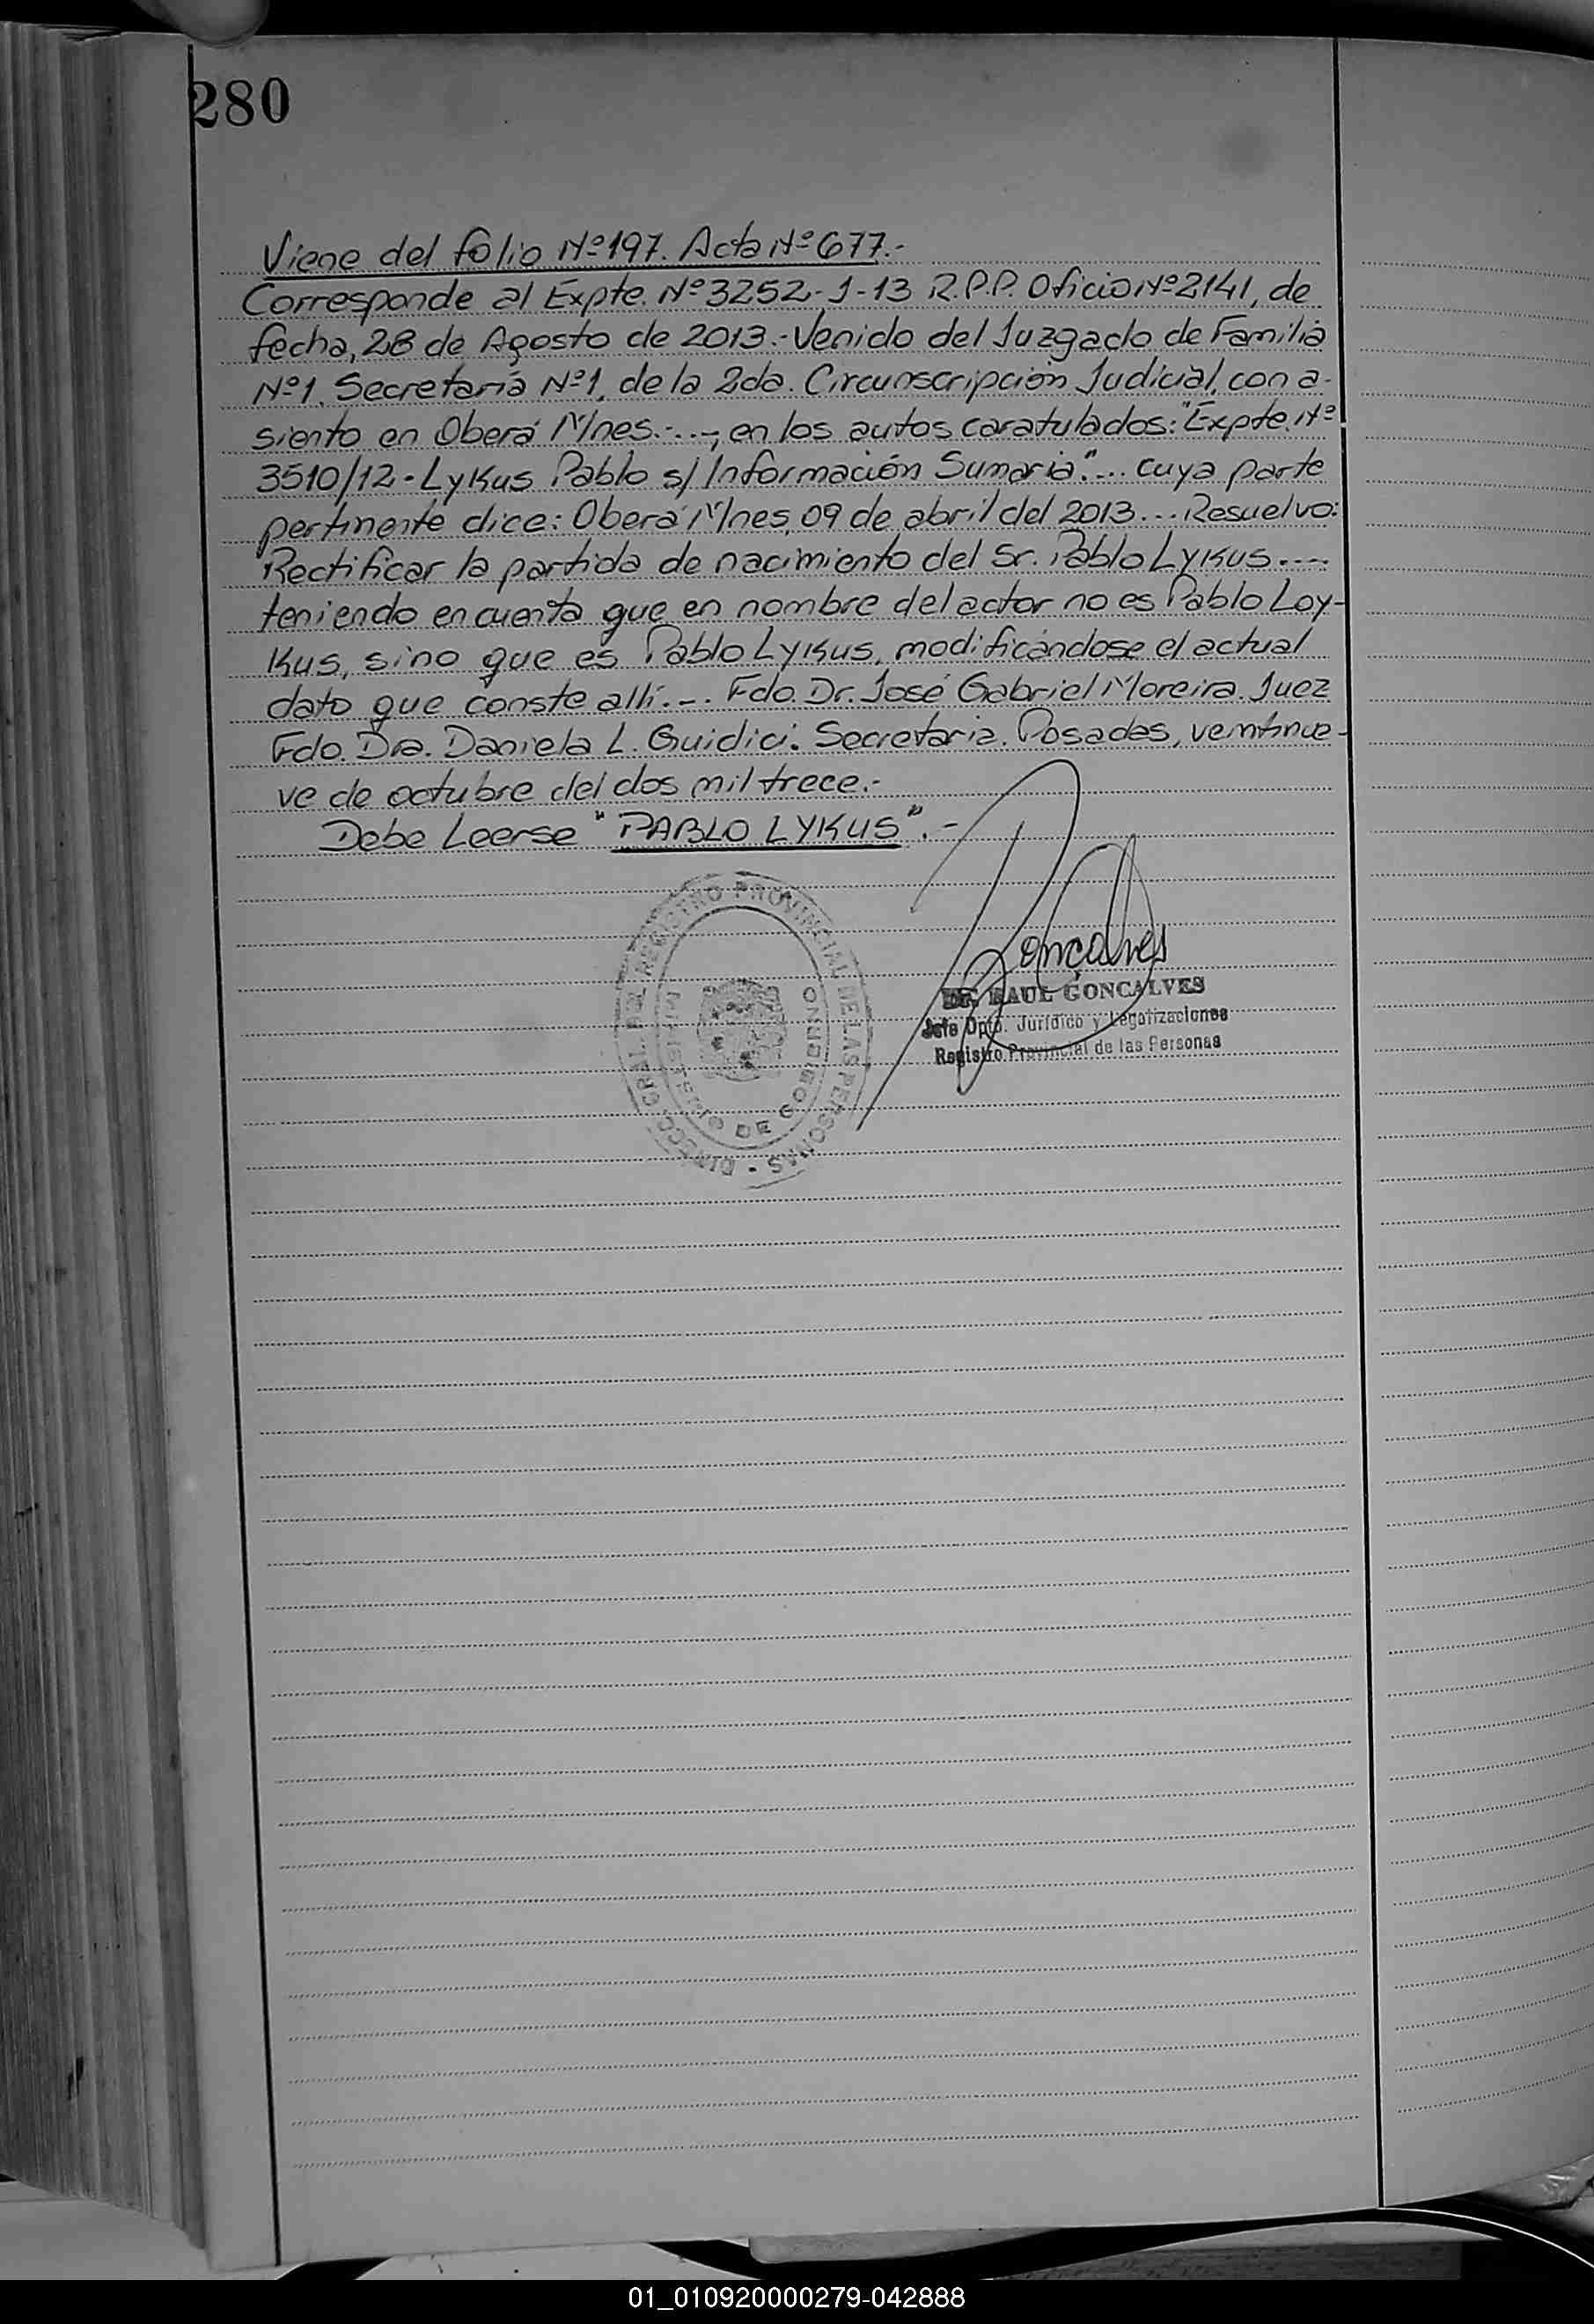 280
Viene del folio Nº197. Acta Nº677.-
Corresponde al Expte. Nº3252-J-13 R.P.P. Oficio Nº2141, de
fecha, 28 de Agosto de 2013.- Venido del Juzgado de Familia
Nº1, Secretaría Nº1, de la 2da. Circunscripción Judicial, con a-
siento en Oberá Mnes.-..-, en los autos caratulados: "Expte. Nº
3510/12 - Lykus Pablo s/ Información Sumaria"... cuya parte
pertinente dice: Oberá Mnes, 09 de abril del 2013... Resuelvo:
Rectificar la partida de nacimiento del Sr. Pablo Lykus....
teniendo en cuenta que en nombre del actor no es Pablo Loy-
kus, sino que es Pablo Lykus, modificándose el actual
dato que conste allí.-. Fdo. Dr. José Gabriel Moreira. Juez
Fdo. Dra. Daniela L. Guidici. Secretaria. Posadas, veintinue-
ve de octubre del dos mil trece.-
Debe Leerse "PABLO LYKUS".-
DIRECC. GRAL. DEL REGISTRO PROVINCIAL DE LAS PERSONAS -
MINISTERIO DE GOBIERNO
Gonçalves
Dr. RAUL GONCALVES
Jefe Dpto. Jurídico y Legalizaciones
Registro Provincial de las Personas
01_010920000279-042888